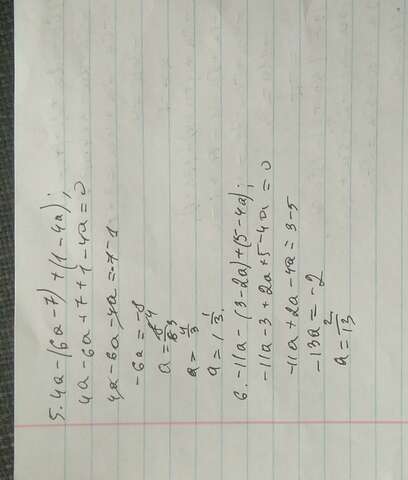 5. 4a-(6a-7)+(1-4a);
4a-6a+7+1-4a=0
4a-6a-4a=-7-1
-6a=-8
a=8/6 4/3
a=4/3
a=1 1/3.
6. -11a-(3-2a)+(5-4a);
-11a-3+2a+5-4a=0
-11a+2a-4a=3-5
-13a=-2
a=2/13